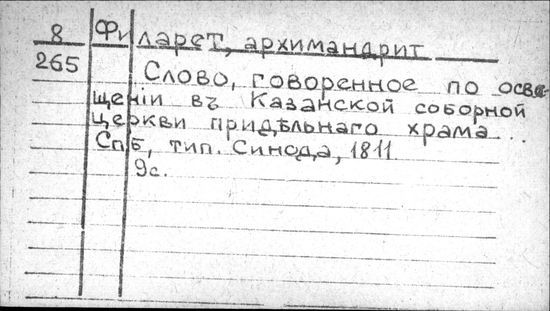 8 Филарет, архимандрит
265 Слово, говоренное по освя-
щенiи въ Казанской соборной
церкви придѣльнаго храма...
Спб, тип. Синода, 1811
9с.